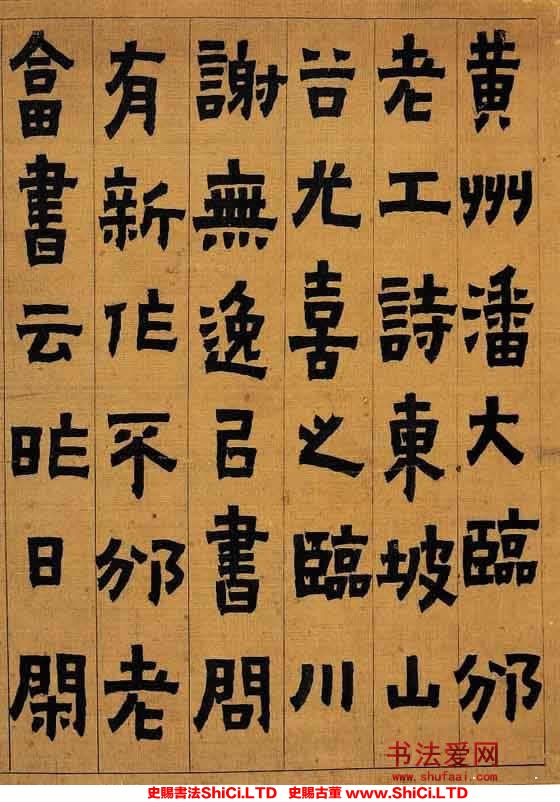 黄州潘大臨邠
老工詩東坡山
谷尤喜之臨川
謝無逸㠯書問
有新作不邠老
畣書云昨日閑
书法爱网
www.shufaai.com
史賜書法ShiCi.LTD 史賜古董 www.ShiCi.LTD